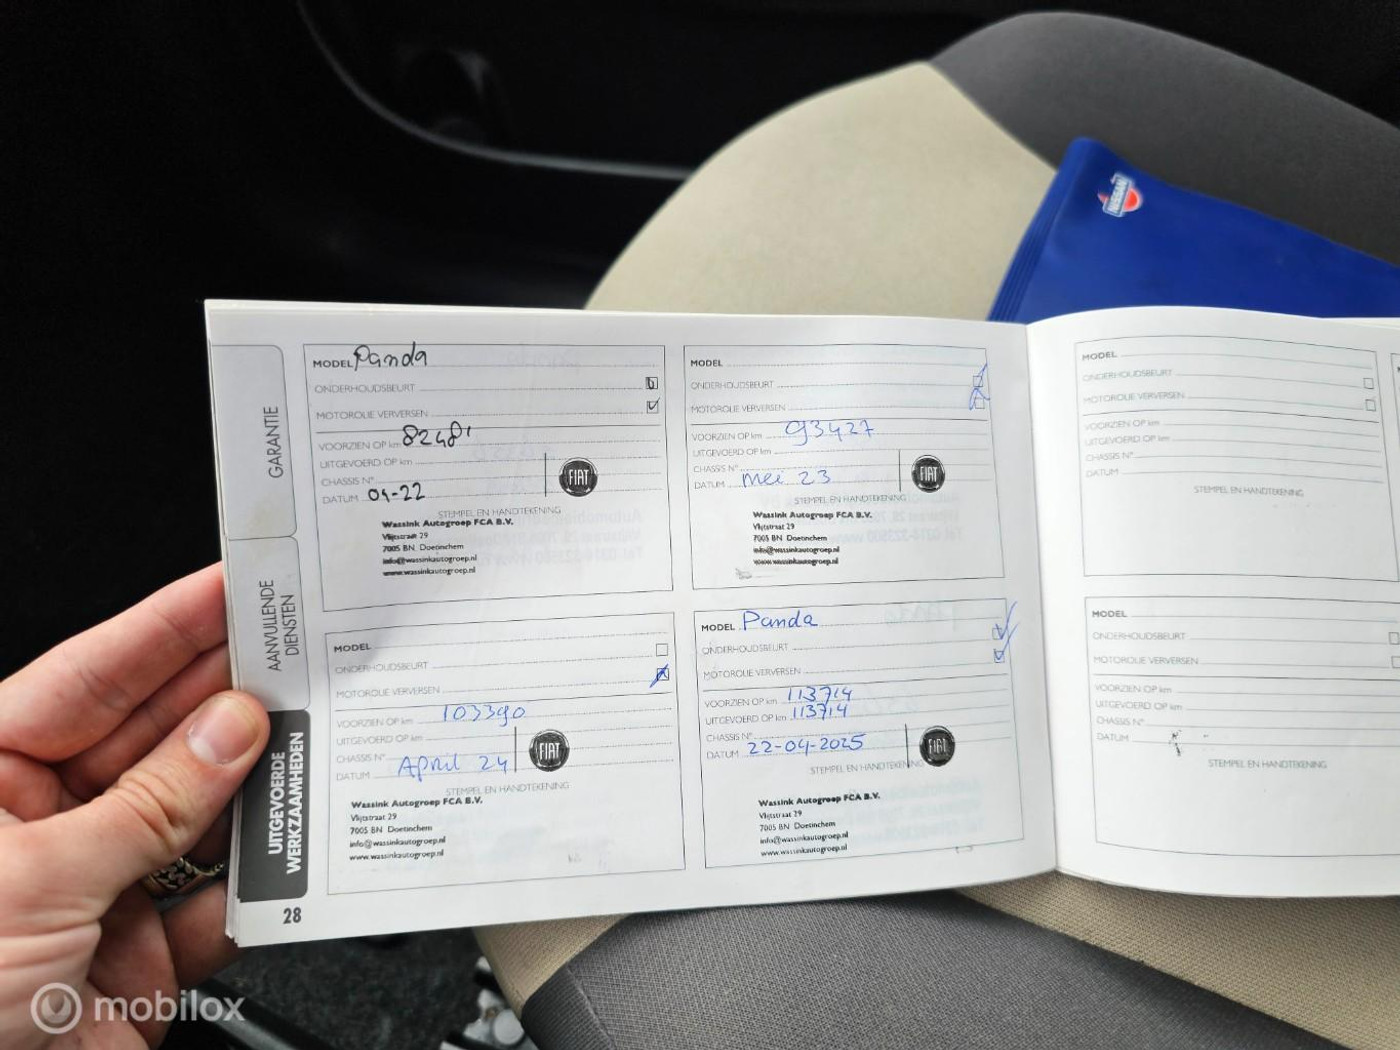 NISSAN
GARANTIE
AANVULLENDE
DIENSTEN
UITGEVOERDE
WERKZAAMHEDEN
28
MODEL Panda
ONDERHOUDSBEURT
MOTOROLIE VERVERSEN
VOORZIEN OP km
UITGEVOERD OP km
CHASSIS N°
DATUM 04-22
FIAT
STEMPEL EN HANDTEKENING
Wassink Autogroep FCA B.V.
Vlijtstraat 29
7005 BN Doetinchem
info@wassinkautogroep.nl
www.wassinkautogroep.nl
MODEL
ONDERHOUDSBEURT
MOTOROLIE VERVERSEN
VOORZIEN OP km 93427
UITGEVOERD OP km
CHASSIS N°
DATUM mei 23
FIAT
STEMPEL EN HANDTEKENING
Wassink Autogroep FCA B.V.
Vlijtstraat 29
7005 BN Doetinchem
info@wassinkautogroep.nl
www.wassinkautogroep.nl
MODEL
ONDERHOUDSBEURT
MOTOROLIE VERVERSEN
VOORZIEN OP km 103390
UITGEVOERD OP km
CHASSIS N°
DATUM April 24
FIAT
STEMPEL EN HANDTEKENING
Wassink Autogroep FCA B.V.
Vlijtstraat 29
7005 BN Doetinchem
info@wassinkautogroep.nl
www.wassinkautogroep.nl
MODEL Panda
ONDERHOUDSBEURT
MOTOROLIE VERVERSEN
VOORZIEN OP km 113714
UITGEVOERD OP km 113714
CHASSIS N°
DATUM 22-04-2025
FIAT
STEMPEL EN HANDTEKENING
Wassink Autogroep FCA B.V.
Vlijtstraat 29
7005 BN Doetinchem
info@wassinkautogroep.nl
www.wassinkautogroep.nl
MODEL
ONDERHOUDSBEURT
MOTOROLIE VERVERSEN
VOORZIEN OP km
UITGEVOERD OP km
CHASSIS N°
DATUM
STEMPEL EN HANDTEKENING
MODEL
ONDERHOUDSBEURT
MOTOROLIE VERVERSEN
VOORZIEN OP km
UITGEVOERD OP km
CHASSIS N°
DATUM
STEMPEL EN HANDTEKENING
mobilox